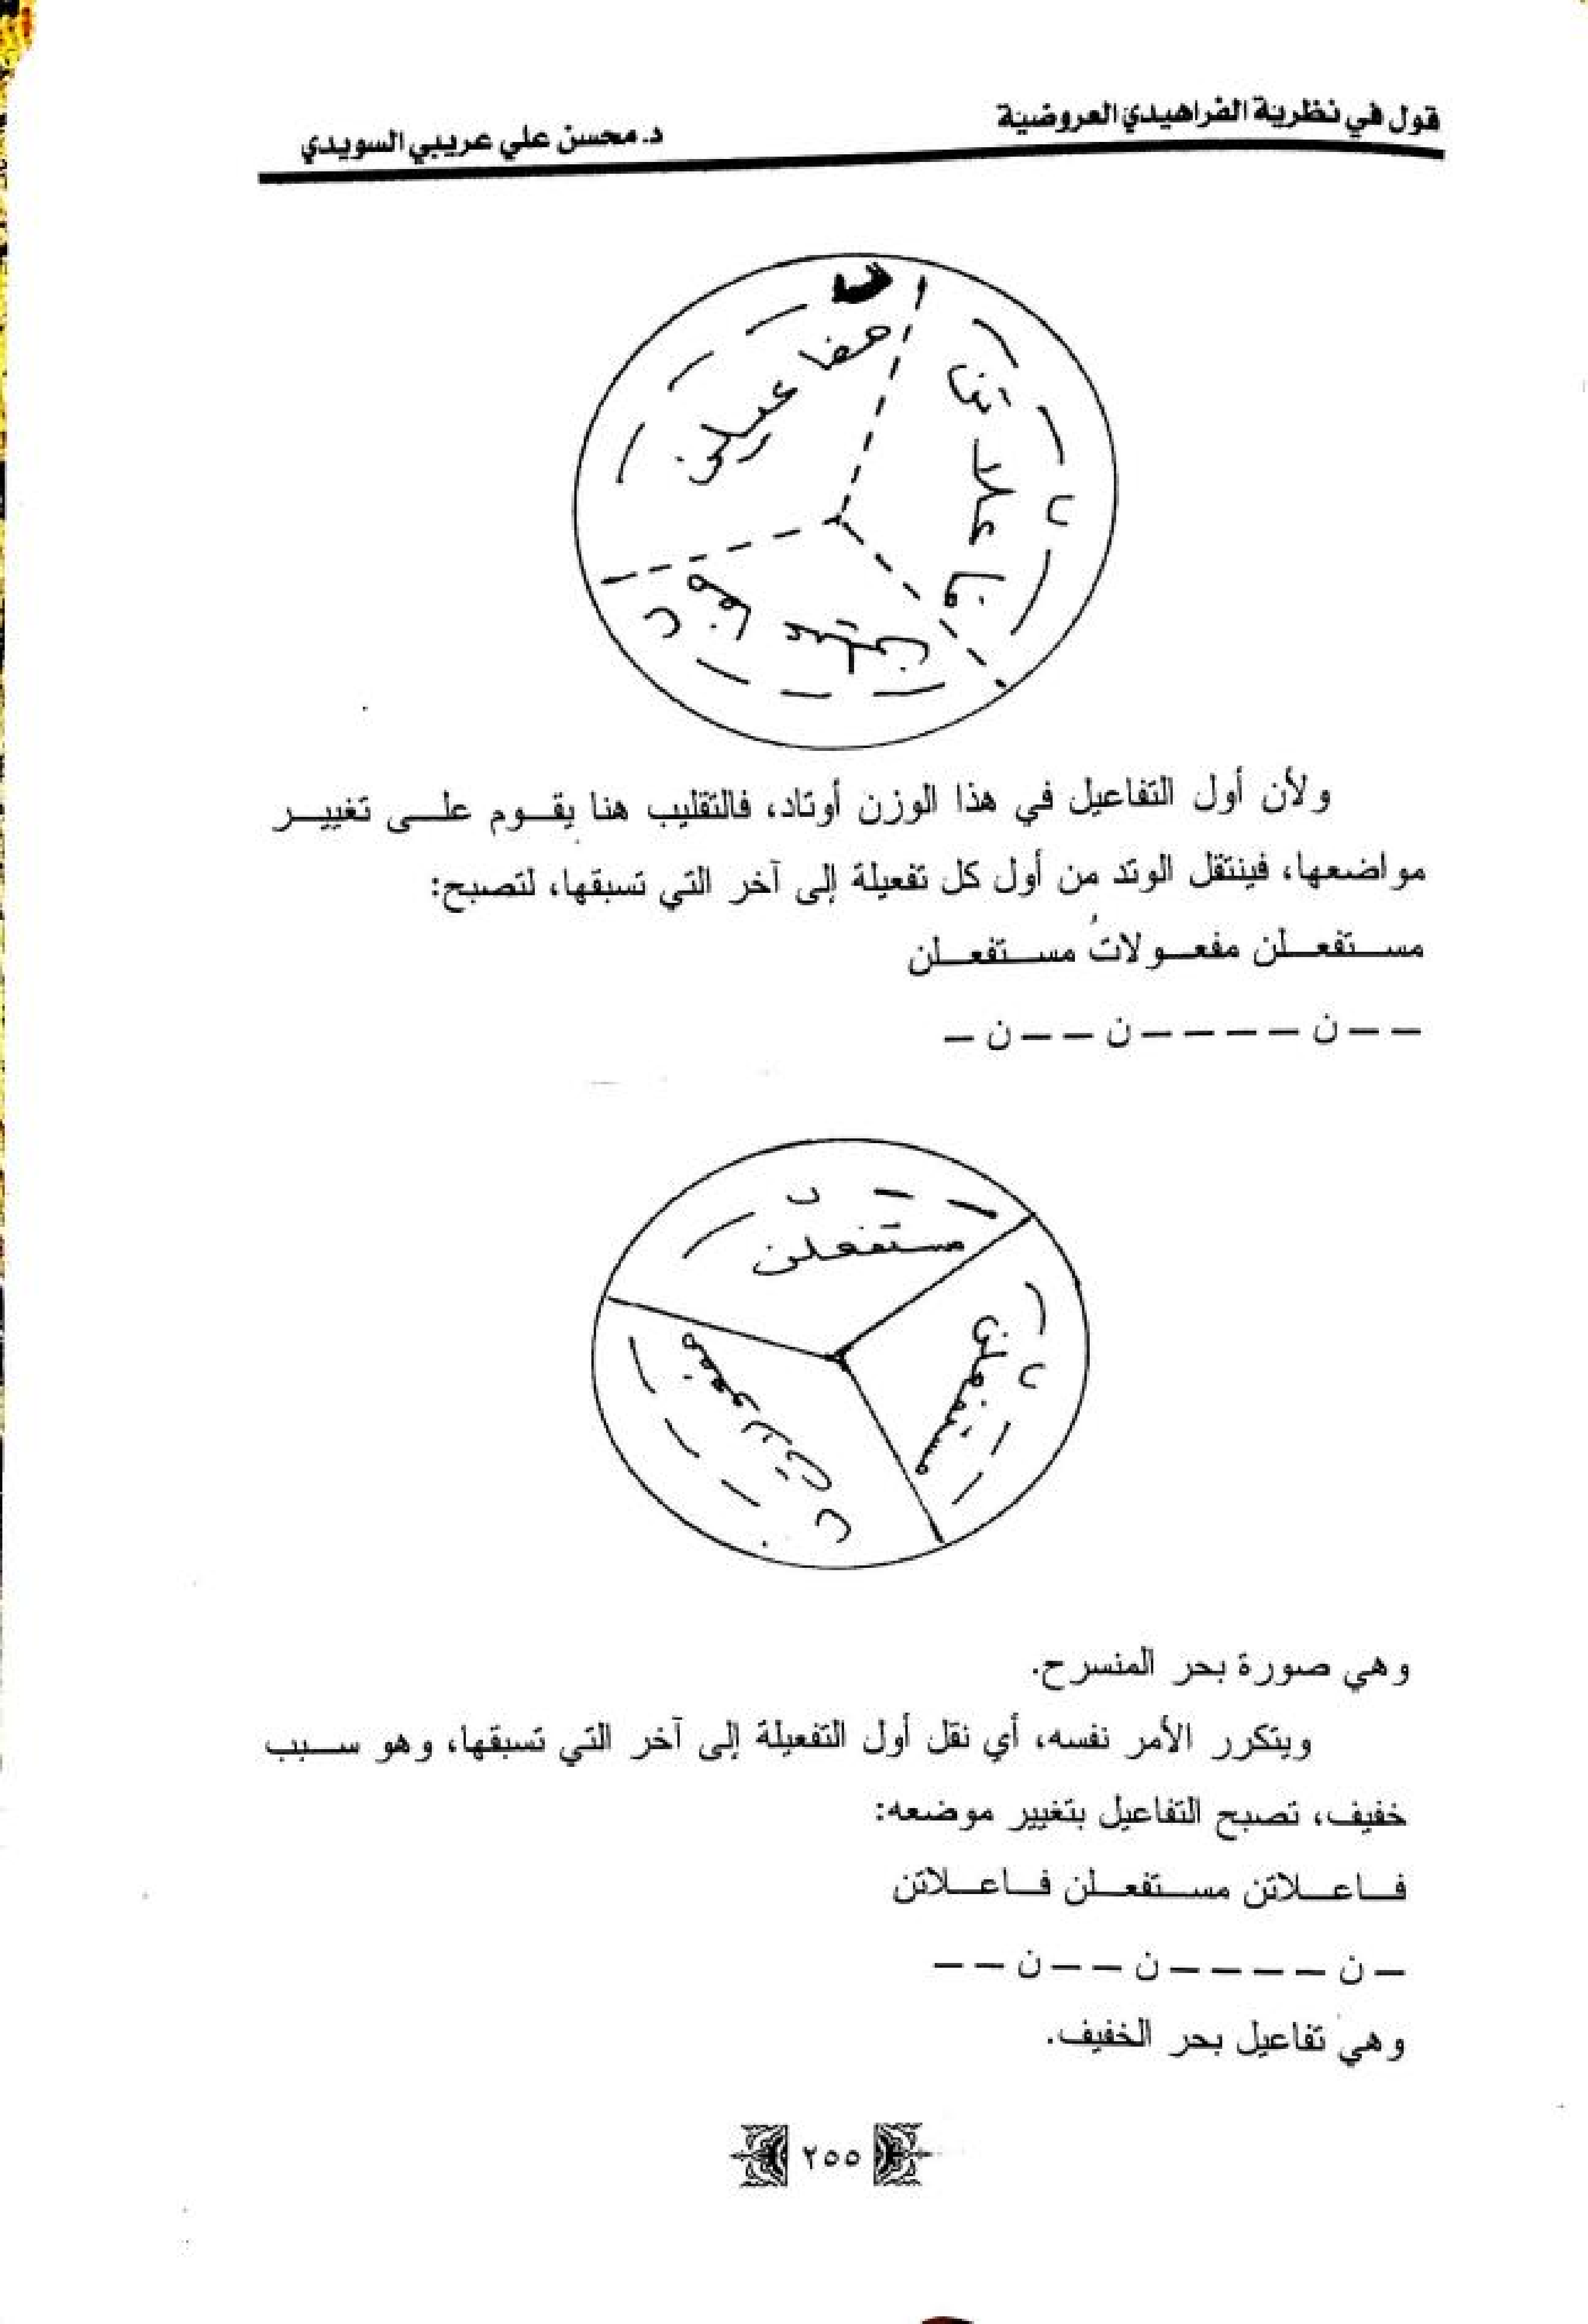 قول في نظرية الفراهيدي العروضية
د. محسن علي عريبي السويدي
مفاعيلن
فاعلاتن
مفاعيلن
ولأن أول التفاعيل في هذا الوزن أوتاد، فالتقليب هنا يقوم على تغيير
مواضعها، فينتقل الوتد من أول كل تفعيلة إلى آخر التي تسبقها، لتصبح:
مستفعلن مفعولاتُ مستفعلن
– – ن – – – – ن – – ن –
مستفعلن
مفعولات
مستفعلن
وهي صورة بحر المنسرح.
ويتكرر الأمر نفسه، أي نقل أول التفعيلة إلى آخر التي تسبقها، وهو سبب
خفيف، تصبح التفاعيل بتغيير موضعه:
فاعلاتن مستفعلن فاعلاتن
– ن – – – – ن – – ن – –
وهي تفاعيل بحر الخفيف.
٢٥٥